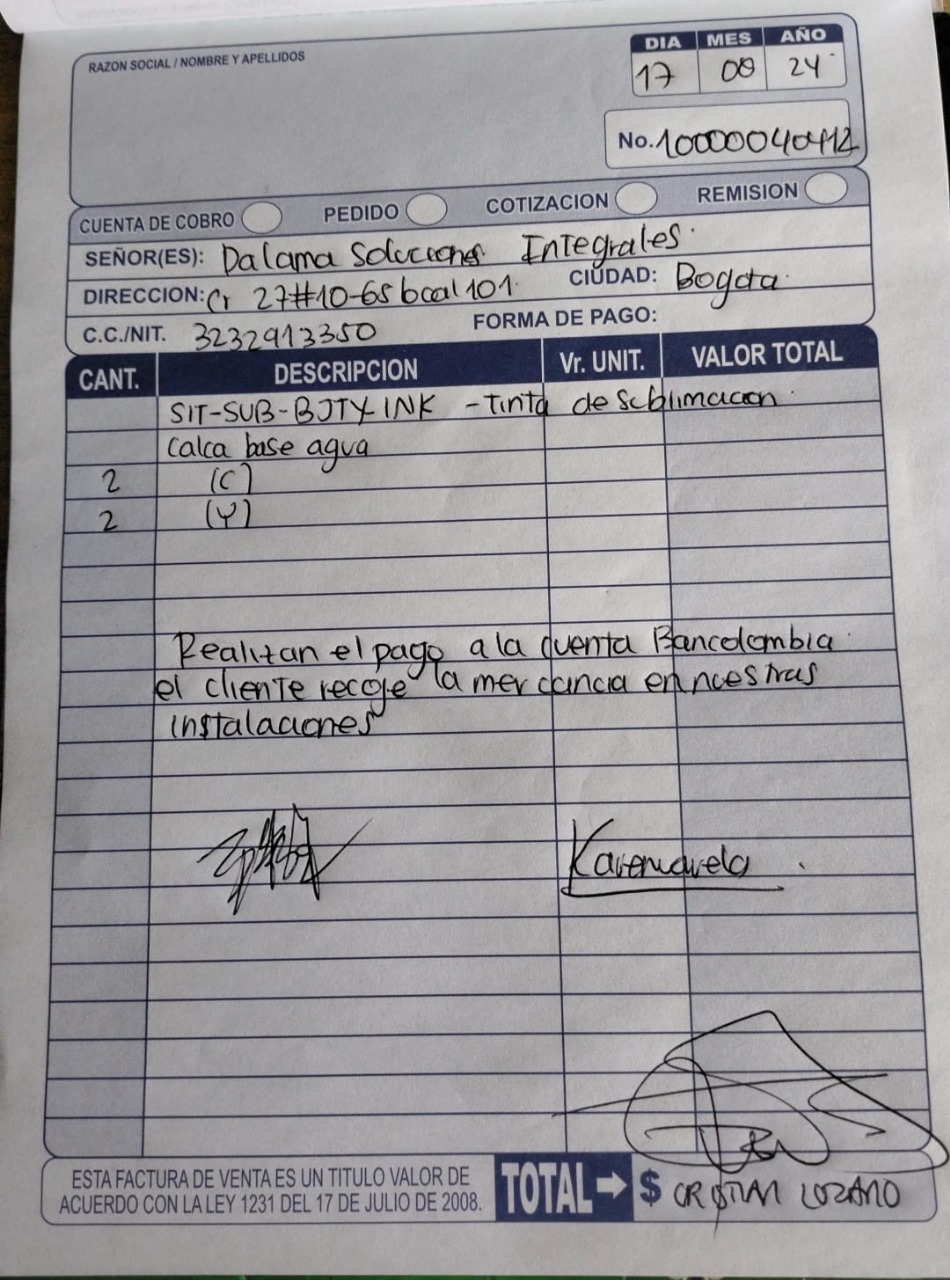 RAZON SOCIAL / NOMBRE Y APELLIDOS
DIA MES AÑO
17 08 24
No. 10000040412
CUENTA DE COBRO PEDIDO COTIZACION REMISION
SEÑOR(ES): Dalama Soluciones Integrales
DIRECCION: Cr 27#10-65 local 101 CIUDAD: Bogota
C.C./NIT. 3232913350 FORMA DE PAGO:
CANT. DESCRIPCION Vr. UNIT. VALOR TOTAL
SIT-SUB-BJTY-INK - Tinta de sublimacion
Calca base agua
2 (C)
2 (Y)
Realizan el pago a la cuenta Bancolombia
el cliente recoje la mercancia en nuestras
instalaciones
ESTA FACTURA DE VENTA ES UN TITULO VALOR DE
ACUERDO CON LA LEY 1231 DEL 17 DE JULIO DE 2008.
TOTAL → $ CRISTIAN LOZANO